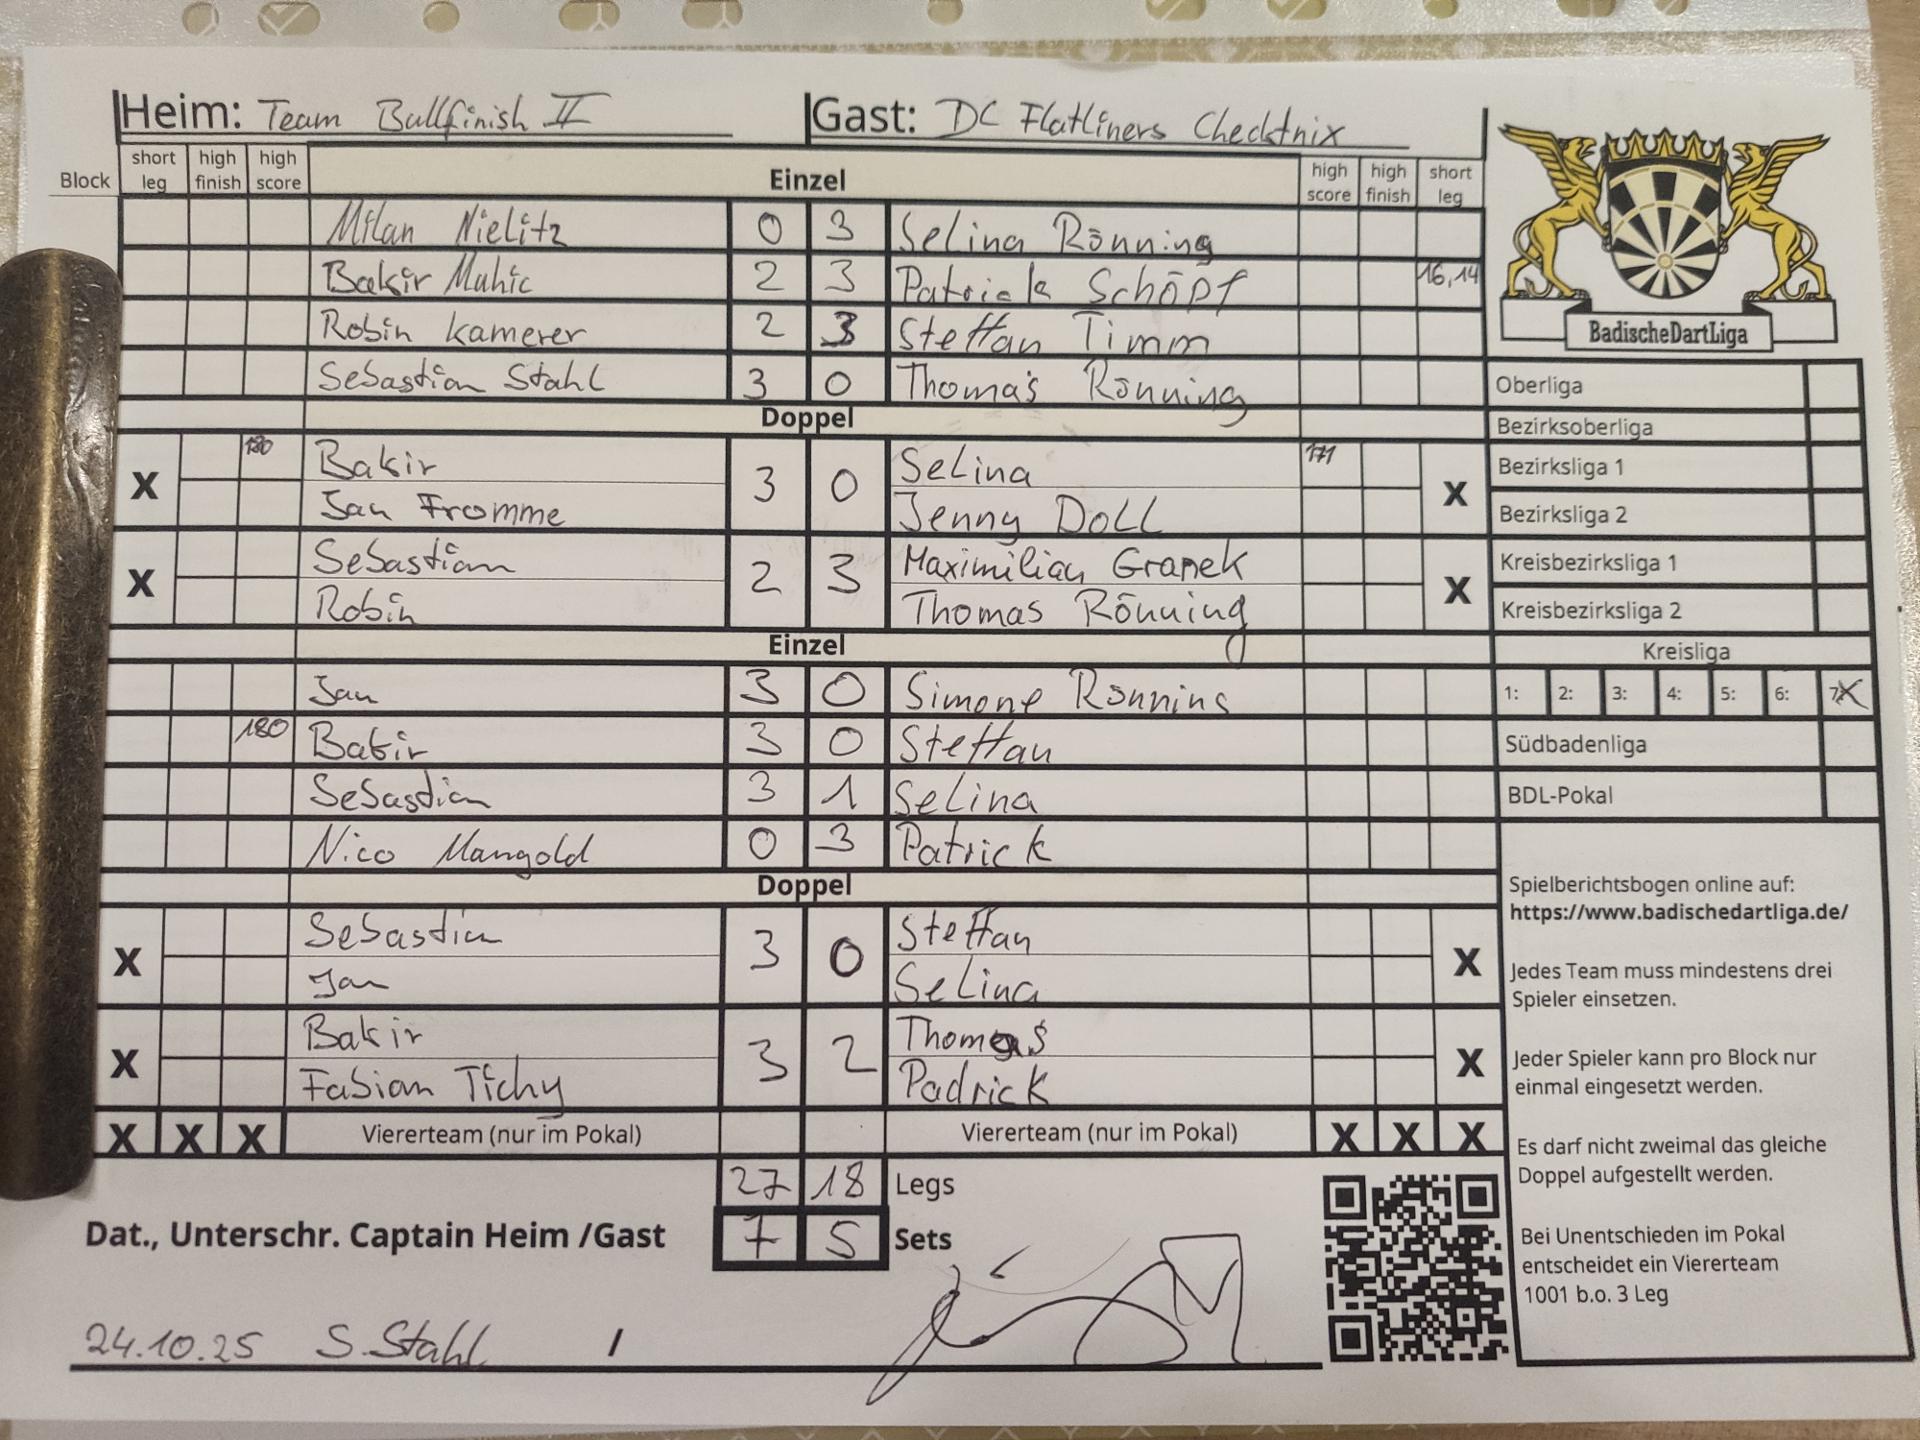 Heim: Team Bullfinish II Gast: DC Flatliners Checktnix
Block short leg high finish high score Einzel high score high finish short leg
Milan Nielitz 0 3 Selina Rönning
Bakir Muhic 2 3 Patrick Schöpf 16,14
Robin Kamerer 2 3 Steffan Timm
Sebastian Stahl 3 0 Thomas Rönning
Doppel
X 180 Bakir 3 0 Selina 171 X
Jan Fromme Jenny Doll
X Sebastian 2 3 Maximilian Granek X
Robin Thomas Rönning
Einzel
Jan 3 0 Simone Rönning
180 Bakir 3 0 Steffan
Sebastian 3 1 Selina
Nico Mangold 0 3 Patrick
Doppel
X Sebastian 3 0 Steffan X
Jan Selina
X Bakir 3 2 Thomas X
Fabian Tichy Padrick
X X X Viererteam (nur im Pokal) Viererteam (nur im Pokal) X X X
27 18 Legs
7 5 Sets
Dat., Unterschr. Captain Heim /Gast
24.10.25 S.Stahl /
BadischeDartLiga
Oberliga
Bezirksoberliga
Bezirksliga 1
Bezirksliga 2
Kreisbezirksliga 1
Kreisbezirksliga 2
Kreisliga
1: 2: 3: 4: 5: 6: 7: X
Südbadenliga
BDL-Pokal
Spielberichtsbogen online auf:
https://www.badischedartliga.de/
Jedes Team muss mindestens drei
Spieler einsetzen.
Jeder Spieler kann pro Block nur
einmal eingesetzt werden.
Es darf nicht zweimal das gleiche
Doppel aufgestellt werden.
Bei Unentschieden im Pokal
entscheidet ein Viererteam
1001 b.o. 3 Leg